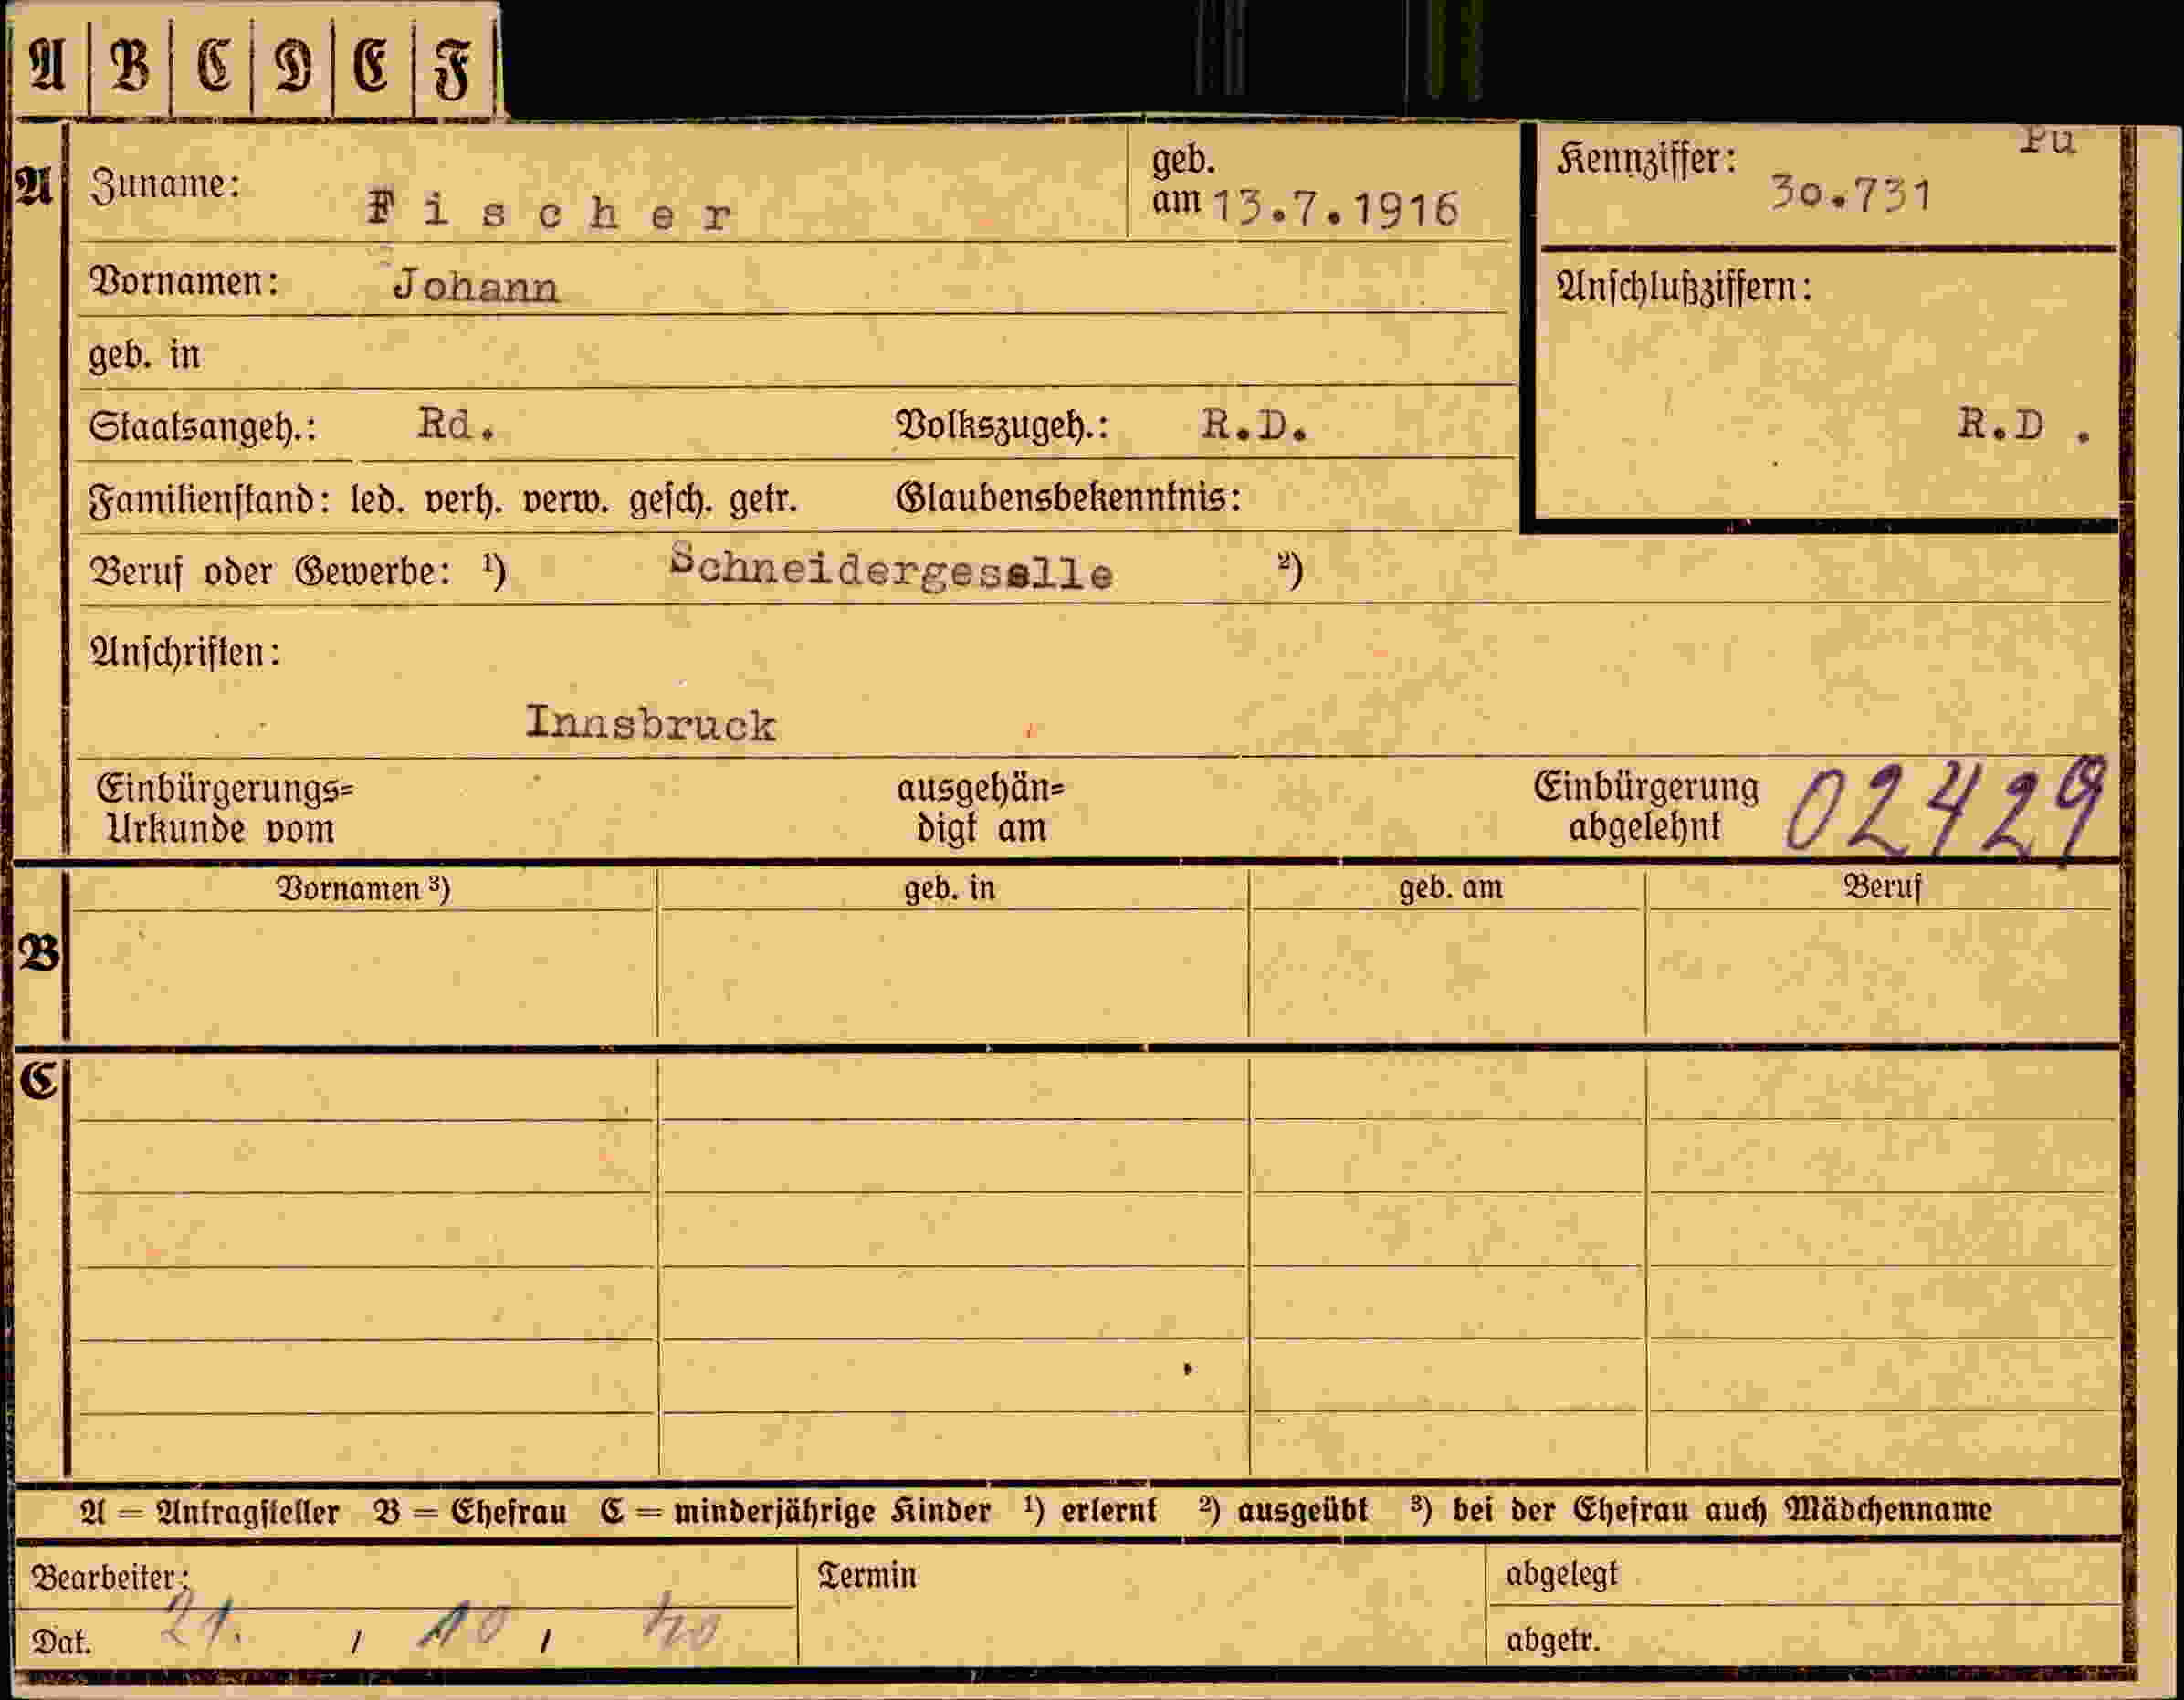 A B C D E F
A Zuname: Fischer geb. am 13.7.1916 Kennziffer: 30.731 Pu
Vornamen: Johann Anschlußziffern:
geb. in
Staatsangeh.: Rd. Volkszugeh.: R.D. R.D .
Familienstand: led. verh. verw. gesch. getr. Glaubensbekenntnis:
Beruf oder Gewerbe: ¹) Schneidergeselle ²)
Anschriften:
Innsbruck
Einbürgerungs= ausgehän= Einbürgerung 02429
Urkunde vom digt am abgelehnt
Vornamen ³) geb. in geb. am Beruf
B
C
A = Antragsteller B = Ehefrau C = minderjährige Kinder ¹) erlernt ²) ausgeübt ³) bei der Ehefrau auch Mädchenname
Bearbeiter: Termin abgelegt
Dat. 21. / 10 / 40 abgetr.